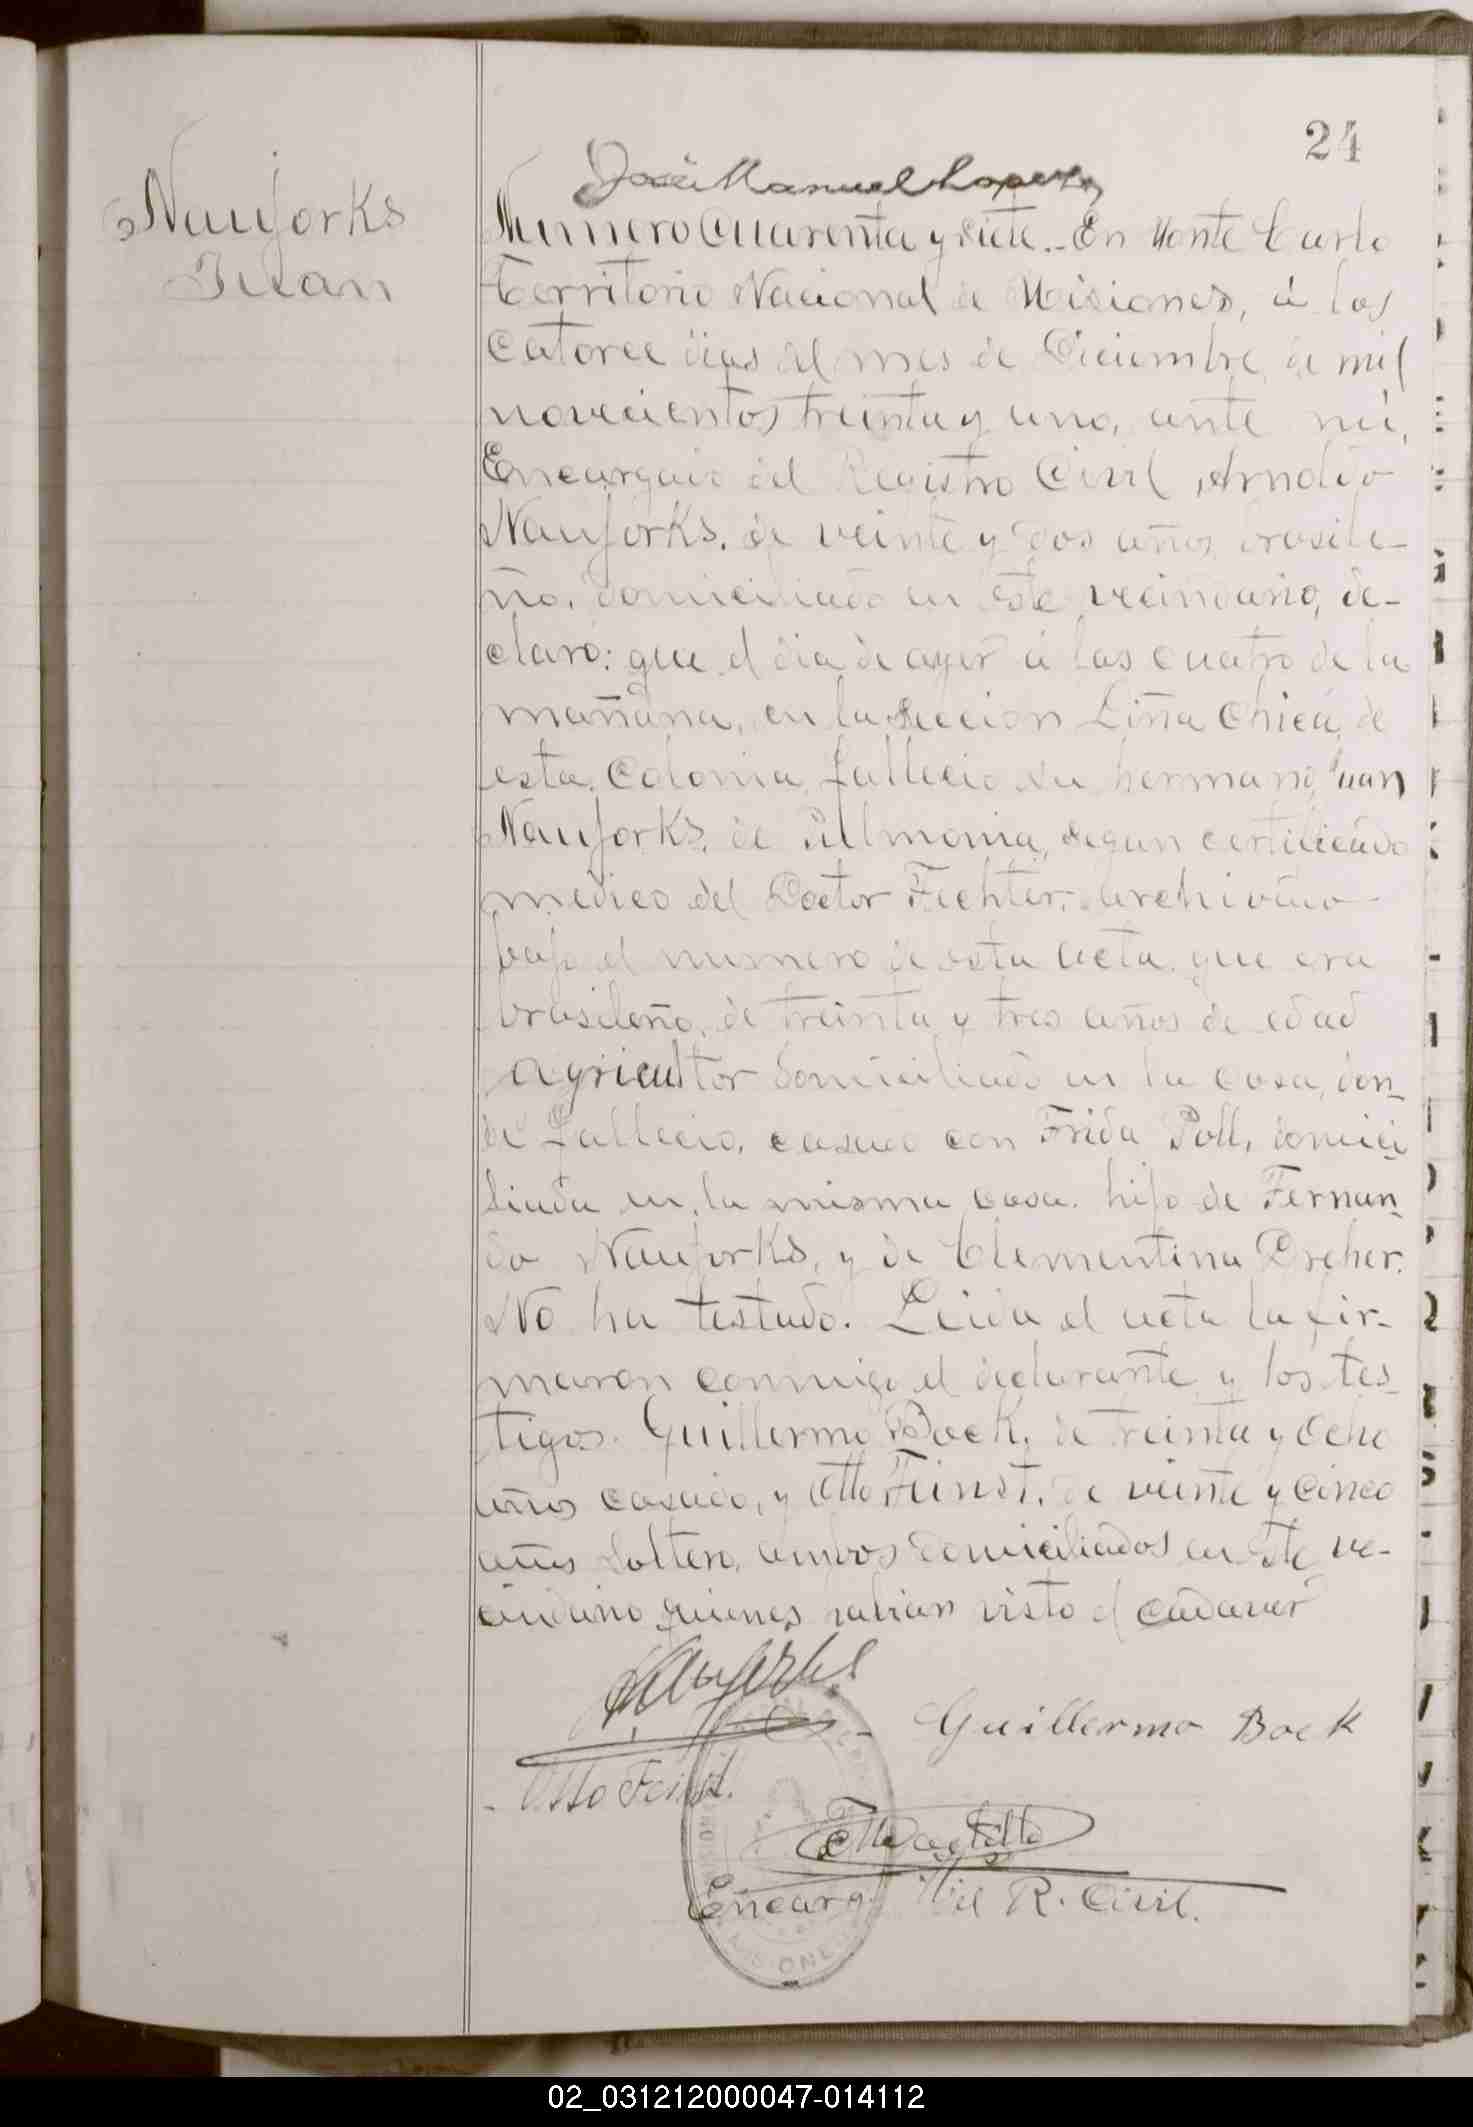 24
José Manuel Lopez
Naujorks
Juan
Numero Cuarenta y siete.- En Monte Carlo
Territorio Nacional de Misiones, á los
catorce dias del mes de Diciembre de mil
novecientos treinta y uno, ante mi,
Encargado del Registro Civil, Arnoldo
Naujorks, de veinte y dos años, brasile-
ño, domiciliado en este vecindario, de-
claró: que el dia de ayer á las cuatro de la
mañana, en la seccion Liña Chica, de
esta Colonia, fallecio su hermano Juan
Naujorks, de Pulmonia, segun certificado
medico del Doctor Fechter, archivado
bajo el numero de esta acta, que era
brasileño, de treinta y tres años de edad
agricultor domiciliado en la casa, don-
de fallecio, casado con Frida Poll, domici
liada en la misma casa, hijo de Fernan-
do Naujorks, y de Clementina Dreher.
No ha testado. Leida el acta la fir-
maron conmigo el declarante y los tes-
tigos. Guillermo Bock, de treinta y ocho
años casado, y Otto Feinst, de veinte y cinco
años soltero, ambos domiciliados en este ve-
cindario quienes habian visto el cadaver
Naujorks
Guillermo Bock
Otto Feinst.
Encarg. del R. Civil.
02_031212000047-014112